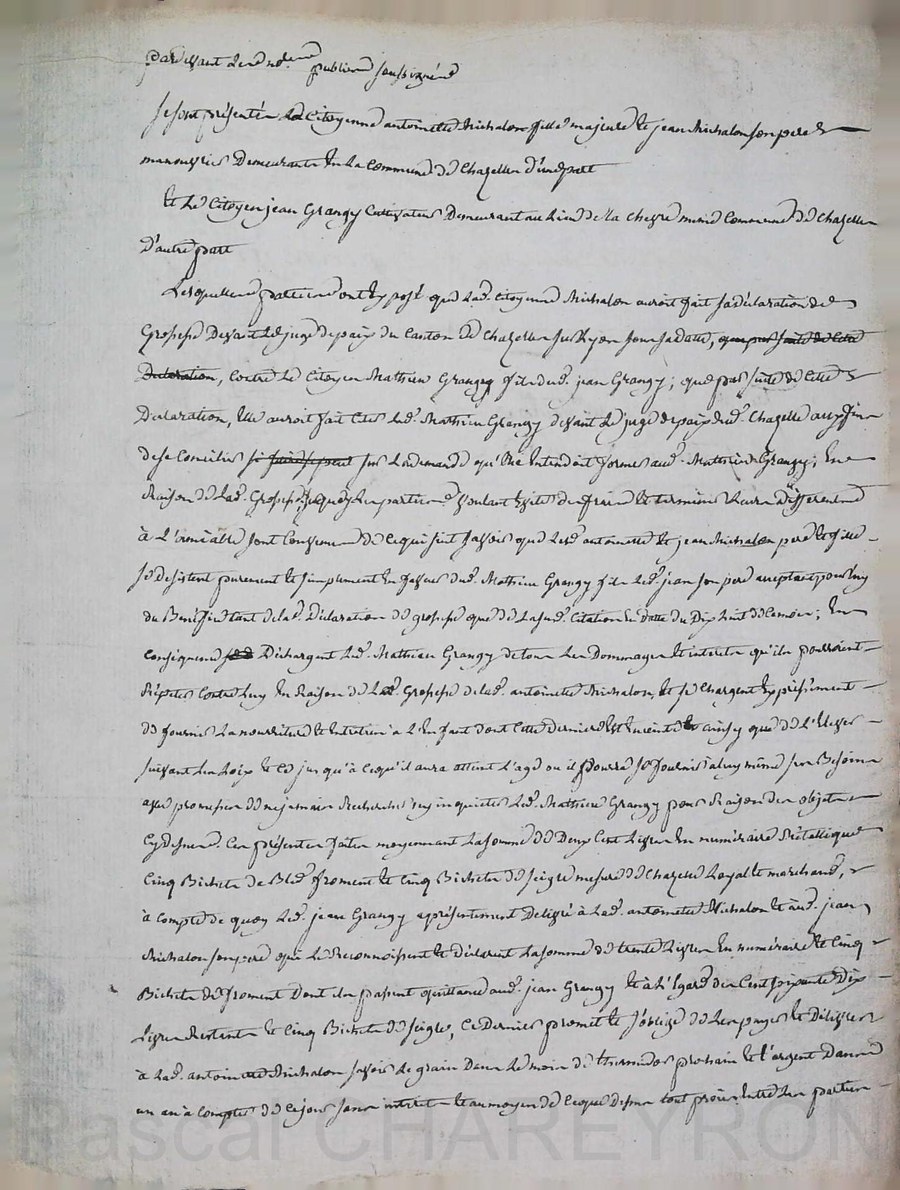 pardevant le no.re public soussigné
se sont présentés la Citoyenne antoinette Michalon fille majeure et jean Michalon son pere
manouvrier Demeurants en la Commune de Chazelles d'une part
et Le Citoyen jean Grangy Cultivateur Demeurant au Lieu de la chevre même Commune de Chazelles
D'autre part
Lesquelles parties ont Exposé que Lad. Citoyenne Michalon auroit fait sa déclaration de
Grossesse Devant Le juge de paix du Canton de Chazelles sur Lyon sous sa date, que par suite de Cette
Declaration, Contre Le Citoyen Mathieu Grangy fils dud. jean Grangy; que par suite de Cette
Declaration, Elle auroit fait Citer Led. Mathieu Grangy devant Le juge de paix dud. Chazelle aux fins
de se Concilier sur La demande qu'Elle Entendoit former aud. Mathieu Grangy; En
Raison de Lad. Grossesse, Lesquelles parties Voulant Eviter des frais et terminer Leurs Differents
à L'amiable sont Convenus de Ce qui suit savoir que Lesd. antoinette et jean Michalon pere et fille
se desistent purement et simplement En faveur dud. Mathieu Grangy fils Led. jean son pere acceptant pour luy
du Benefice tant de lad. Déclaration de grossesse que de La susd. Citation En datte du Dix huit de ; En
Consequence Déchargent Led. Mathieu Grangy de tous Les Dommages et interets qu'ils pourroient
Répeter Contre Luy En Raison de Lad. Grossesse de lad. antoinette Michalon, et se Chargent Expressément
de fournir La nourriture et Entretien à L'Enfant dont Cette Derniere Est Enceinte et ainsy que de L'Elever
suivant Les Loix et Ce jusqu'à Ce qu'il aura atteint L'age ou il pourra se fournir a luy même ses Besoins
avec promesse de ne jamais Rechercher ny inquieter Led. Mathieu Grangy pour Raison des objets
Cy dessus. Ces présentes faites moyennant La somme de Deux Cent Livres En numéraire Métallique
Cinq Bichets de Bled froment et Cinq Bichets de seigle mesure de Chazelle Loyal et marchand,
à Compte de quoy Led. jean Grangy a présentement Delivré à Lad. antoinette Michalon et aud. jean
Michalon son pere qui Le Reconnoissent et Déclarent La somme de trente Livres En numéraire et Cinq
Bichets de froment Dont ils passent quittance aud. jean Grangy et à L'Egard des Cent soixante Dix
Livres Restantes et Cinq Bichets de seigle, Ce Dernier promet et s'oblige de Les payer et Délivrer
à Lad. antoinette Michalon savoir Le grain Dans Le mois de thermidor prochain et l'argent Dans
un an à Compter de Ce jour sans interets et au moyen de Ce que Dessus tout procès Entre Les parties
Pascal CHAREYRON